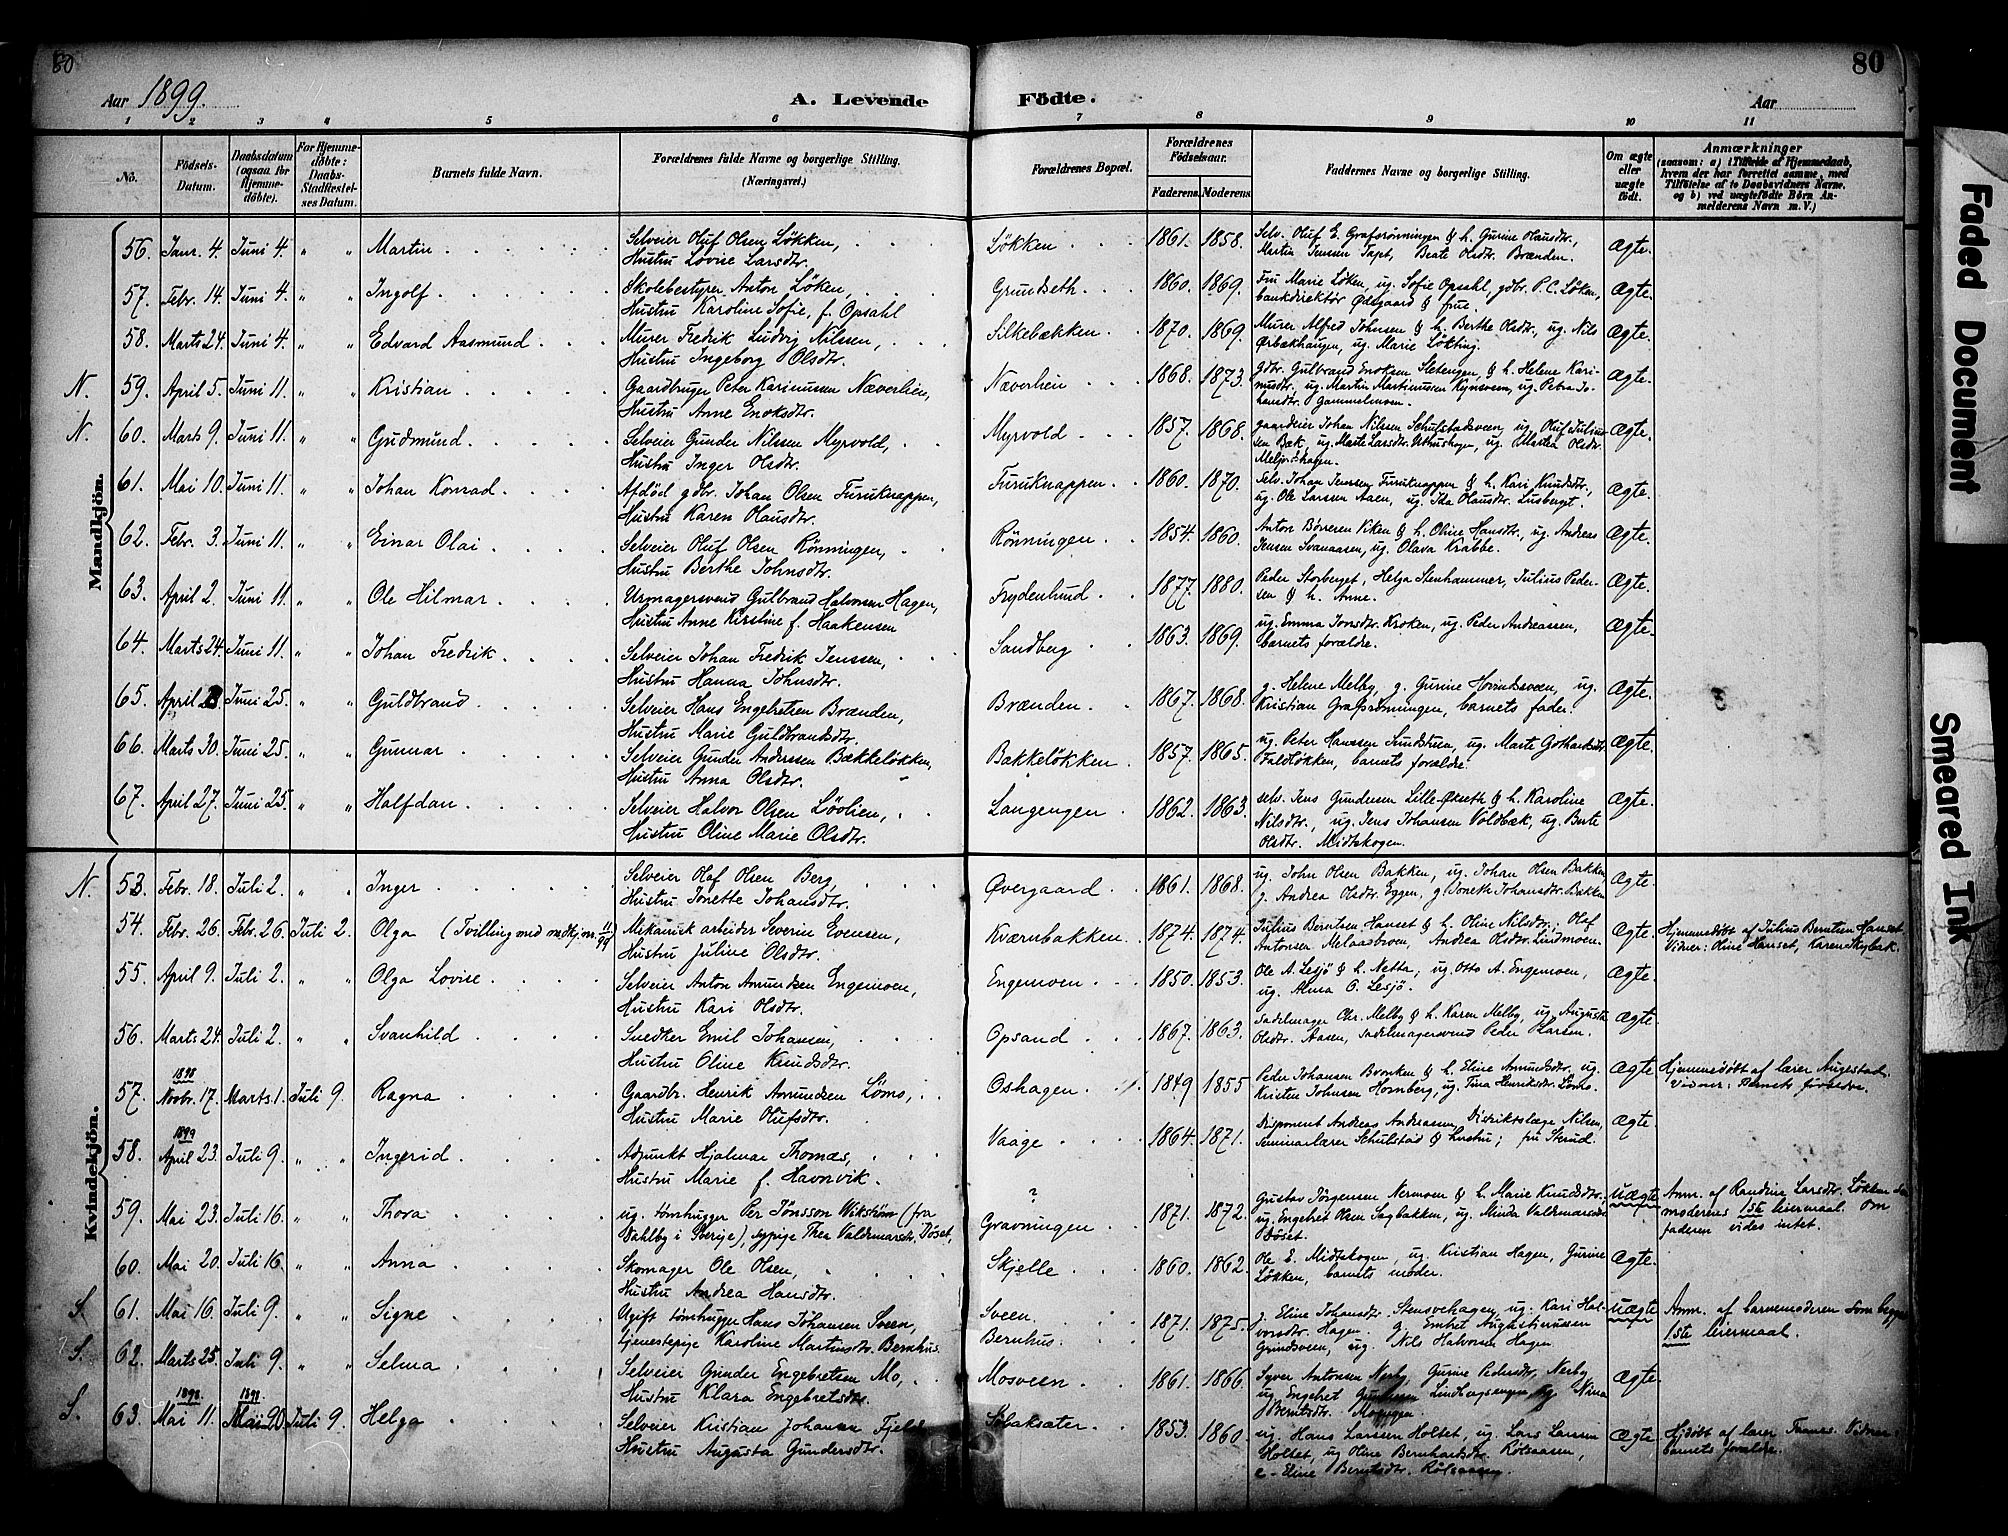 80
80
Aar 1899.
A. Levende Födte.
Aar
1 2 3 4 5 6 7 8 9 10 11
No.
Födsels-Datum.
Daabsdatum (ogsaa for Hjemmedöbte).
For Hjemmedöbte: Daabs-Stadfæstelses Datum.
Barnets fulde Navn.
Forældrenes fulde Navne og borgerlige Stilling. (Næringsvei.)
Forældrenes Bopæl.
Forældrenes Födselsaar.
Faderens. Moderens.
Faddernes Navne og borgerlige Stilling.
Om ægte eller uægte födt.
Anmærkninger
(saasom: a) i Tilfælde af Hjemmedaab, hvem der har forrettet samme, med Tilföielse af to Daabsvidners Navne, og b) ved uægtefödte Börn Anmelderens Navn m. V.)
Mandkjön.
56. Janr. 4. Juni 4. " " Martin Selveier Oluf Olsen Løkken, Løkken 1861. 1858. Selv. Oluf E. Grafsrønningen & h. Gurine Olausdtr., Ægte.
Hustru Lovise Larsdtr. Martin Jenssen Tapt, Beate Olsdtr. Brænden.
57. Febr. 14. Juni 4. " " Ingolf Skolebestyrer Anton Løken, Grundseth 1860. 1869. Fru Marie Løken, ug. Sofie Opsahl, gdbr. P. C. Løken, Ægte.
Hustru Karoline Sofie, f. Opsahl bankdirektør Ødegaard & frue.
58. Marts 24. Juni 4. " " Edvard Aasmund Murer Fredrik Ludvig Nilssen, Silkebækken 1870. 1869. Murer Alfred Johnsen & h. Berthe Olsdtr., ug. Nils Ægte.
Hustru Ingeborg Olsdtr. Ørbækhaugen, ug. Marie Løkting.
N. 59. April 5. Juni 11. " " Kristian Gaardbruger Peter Karinusen Næverlien, Næverlien 1868. 1873. Gdbr. Gulbrand Enoksen Sletengen, & h. Helene Karinusdtr. Ægte.
Hustru Anne Enoksdtr. ug. Martin Martinussen Kynsveen, ug. Petra Johansdtr. Gammelmoen.
N. 60. Marts 9. Juni 11. " " Gudmund Selveier Gunder Nilssen Myrvold, Myrvold 1857. 1868. gaardeier Johan Nilssen Schulstadsveen, ug. Oluf Juliussen Ægte.
Hustru Inger Olsdtr. Bæk, ug. Marte Larsdtr. Uthushagen, ug. Martea Olsdtr.
61. Mai 10. Juni 11. " " Johan Konrad Afdød gdbr. Johan Olsen Furuknappen, Furuknappen 1860. 1870. Selv. Johan Jenssen Furuknappen & h. Kari Knudsdtr., Ægte.
Hustru Karen Olausdtr. ug. Ole Larssen Aaen, ug. Ida Olausdtr. Lusberget.
62. Febr. 3. Juni 11. " " Einar Olai Selveier Oluf Olsen Rönningen, Rönningen 1854. 1860. Anton Børresen Kiken & h. Oline Hansdtr., ug. Andreas Ægte.
Hustru Berthe Johnsdtr. Jensen Svanaasen, ug. Olava Krabbe.
63. April 2. Juni 11. " " Ole Hilmar Urmagersvend Gulbrand Halvorsen Hagen, Frydenlund 1877. 1880. Peder Storberget, Helga Stenhammer, Julius Pedersen Ægte.
Hustru Anne Kirstine f. Haakensen & h. Anne.
64. Marts 24. Juni 11. " " Johan Fredrik Selveier Johan Fredrik Jenssen, Sandberg 1863. 1869. ug. Emma Jonsdtr. Kroken, ug. Peder Andreassen, Ægte.
Hustru Hanna Johnsdtr. barnets forældre.
65. April Juni 25. " " Guldbrand Selveier Hans Engebretsen Brænden, Brænden 1867. 1868. g. Helene Melby, g. Gurine Hovindsveen, ug. Ægte.
Hustru Marie Guldbrandsdtr. Kristian Grafsrønningen, barnets fader.
66. Marts 30. Juni 25. " " Gunnar Selveier Gunder Anderssen Bækkeløkken, Bakkeløkken 1857. 1865. ug. Peter Hanssen Sundstuen, ug. Marte Gothardsdtr. Ægte.
Hustru Anna Olsdtr. Faldløkken, barnets forældre.
67. April 27. Juni 25. " " Halfdan Selveier Halvor Olsen Løvlien, Langengen 1862. 1863. selv. Jens Gundersen Lille-Økseth & h. Karoline Ægte.
Hustru Oline Marie Olsdtr. Nilsdtr., ug. Jens Johansen Voldbæk, ug. Berte Olsdtr. Midtskogen.
Kvindekjön.
N. 53. Febr. 18. Juli 2. " " Inger Selveier Olaf Olsen Berg, Øvergaard 1861. 1868. ug. John Olsen Bakken, ug. Johan Olsen Bakken Ægte.
Hustru Jonette Johansdtr. g. Andrea Olsdtr. Eggen, g. Joneth Johansdtr. Bakken
54. Febr. 26. Febr. 26. Juli 2. Olga (Tvilling med mdkj. nr. 11/99) Mekanisk arbeider Severin Evensen, Kværnbakken 1874. 1874. Julius Berntsen Hanset & h. Oline Nilsdtr.; Olaf Ægte. Hjemmedöbt af Julius Berntsen Hanset
Hustru Juline Olsdtr. Antonsen Melaasbroen, Andrea Olsdtr. Lindmoen. Vidner: Oline Hanset, Karen Kybak.
55. April 9. Juli 2. " " Olga Lovise Selveier Anton Amundsen Engemoen, Engemoen 1850. 1853. Ole A. Lesjö & h. Netta; ug. Otto A. Engemoen, Ægte.
Hustru Kari Olsdtr. ug. Alma O. Lesjö.
56. Marts 24. Juli 2. " " Svanhild Snedker Emil Johansen, Opsand 1867. 1863. Sadelmager Chr. Melby & h. Karen Melby, ug. Augusta Ægte.
Hustru Oline Knudsdtr. Olsdtr. Aasen, Sadelmagersvend Peder Larsen.
57. 1898 Novbr. 17. Marts 1. Juli 9. Ragna Gaardbr. Henrik Amundsen Löms, Oshagen 1849 1855 Peder Johansen Bronken & h. Eline Amundsdtr., ug. Ægte Hjemmedöbt af lærer Augestad.
Hustru Marie Olufsdtr. Kristen Johnsen Hornberg, ug. Tina Henriksdtr. Löms. Vidner: Barnets forældre.
58. 1899 April 23. Juli 9. " " Ingerid Adjunkt Hjalmar Thomæs, Vaage 1864. 1871. Disponent Andreas Andreassen, Distriktslæge Nilsen, Ægte.
Hustru Marie f. Havnvik. Seminarlærer Schulstad & hustru; fru Strud.
59. Mai 23. Juli 16. " " Thora ug. tømhugger Per Jönsson Wikström (fra ? 1871. 1872. Gustav Jörgensen Nermoen & h. Marie Knudsdtr. uægte Anm. af Randine Larsdtr. Løkken
Dahlby i Sverige), sypige Thea Valdemarsdtr. Döset, Gravningen ug. Engebret Olsen Sagbakken, ug. Minda Valdemarsdtr. Döset. moderens 1ste leiermaal. Om faderen vides intet.
60. Mai 20. Juli 16. " " Anna Skomager Ole Olsen, Skjelle 1860. 1862. Ole E. Midtskogen, ug. Kristian Hagen, Gurine Ægte.
Hustru Andrea Hansdtr. Løkken, barnets moder.
S. 61. Mai 16. Juli 9. " " Signe Ugift tømhugger Hans Johansen Sveen, Sveen 1871. 1875. g. Eline Johansdtr. Stensvehagen, ug. Kari Halvorsdtr. uægte Anm. af barnemoderen som begges
tjenestepige Karoline Martinsdtr. Bernhus. Bernhus. Hagen, g. Embret Augustinussen Grundsveen, ug. Nils Halvorsen Hagen 1ste leiermaal.
S. 62. Marts 25. Juli 9. " " Selma Selveier Gunder Engebretsen Mo, Mosveen 1861. 1866. Syver Antonsen Nerby, Gurine Pedersdtr. Nerby Ægte.
Hustru Klara Engebretsdtr. ug. Engebret Gundersen
S. 63. 1898 Mai 11. 1898 Mai 20. Juli 9. Helga Selveier Kristian Johansen 1853. 1860. ug. Hans Larssen Holtet, ug. Lars Larssen Ægte Hjdöbt af lærer
Hustru Augusta Gundersdtr. Holtet, ug. Oline Bernhardsdtr. Rölsaasen barnets forældre.
Eline Berntsdtr. Rölsaasen
Faded Document
Smeared Ink